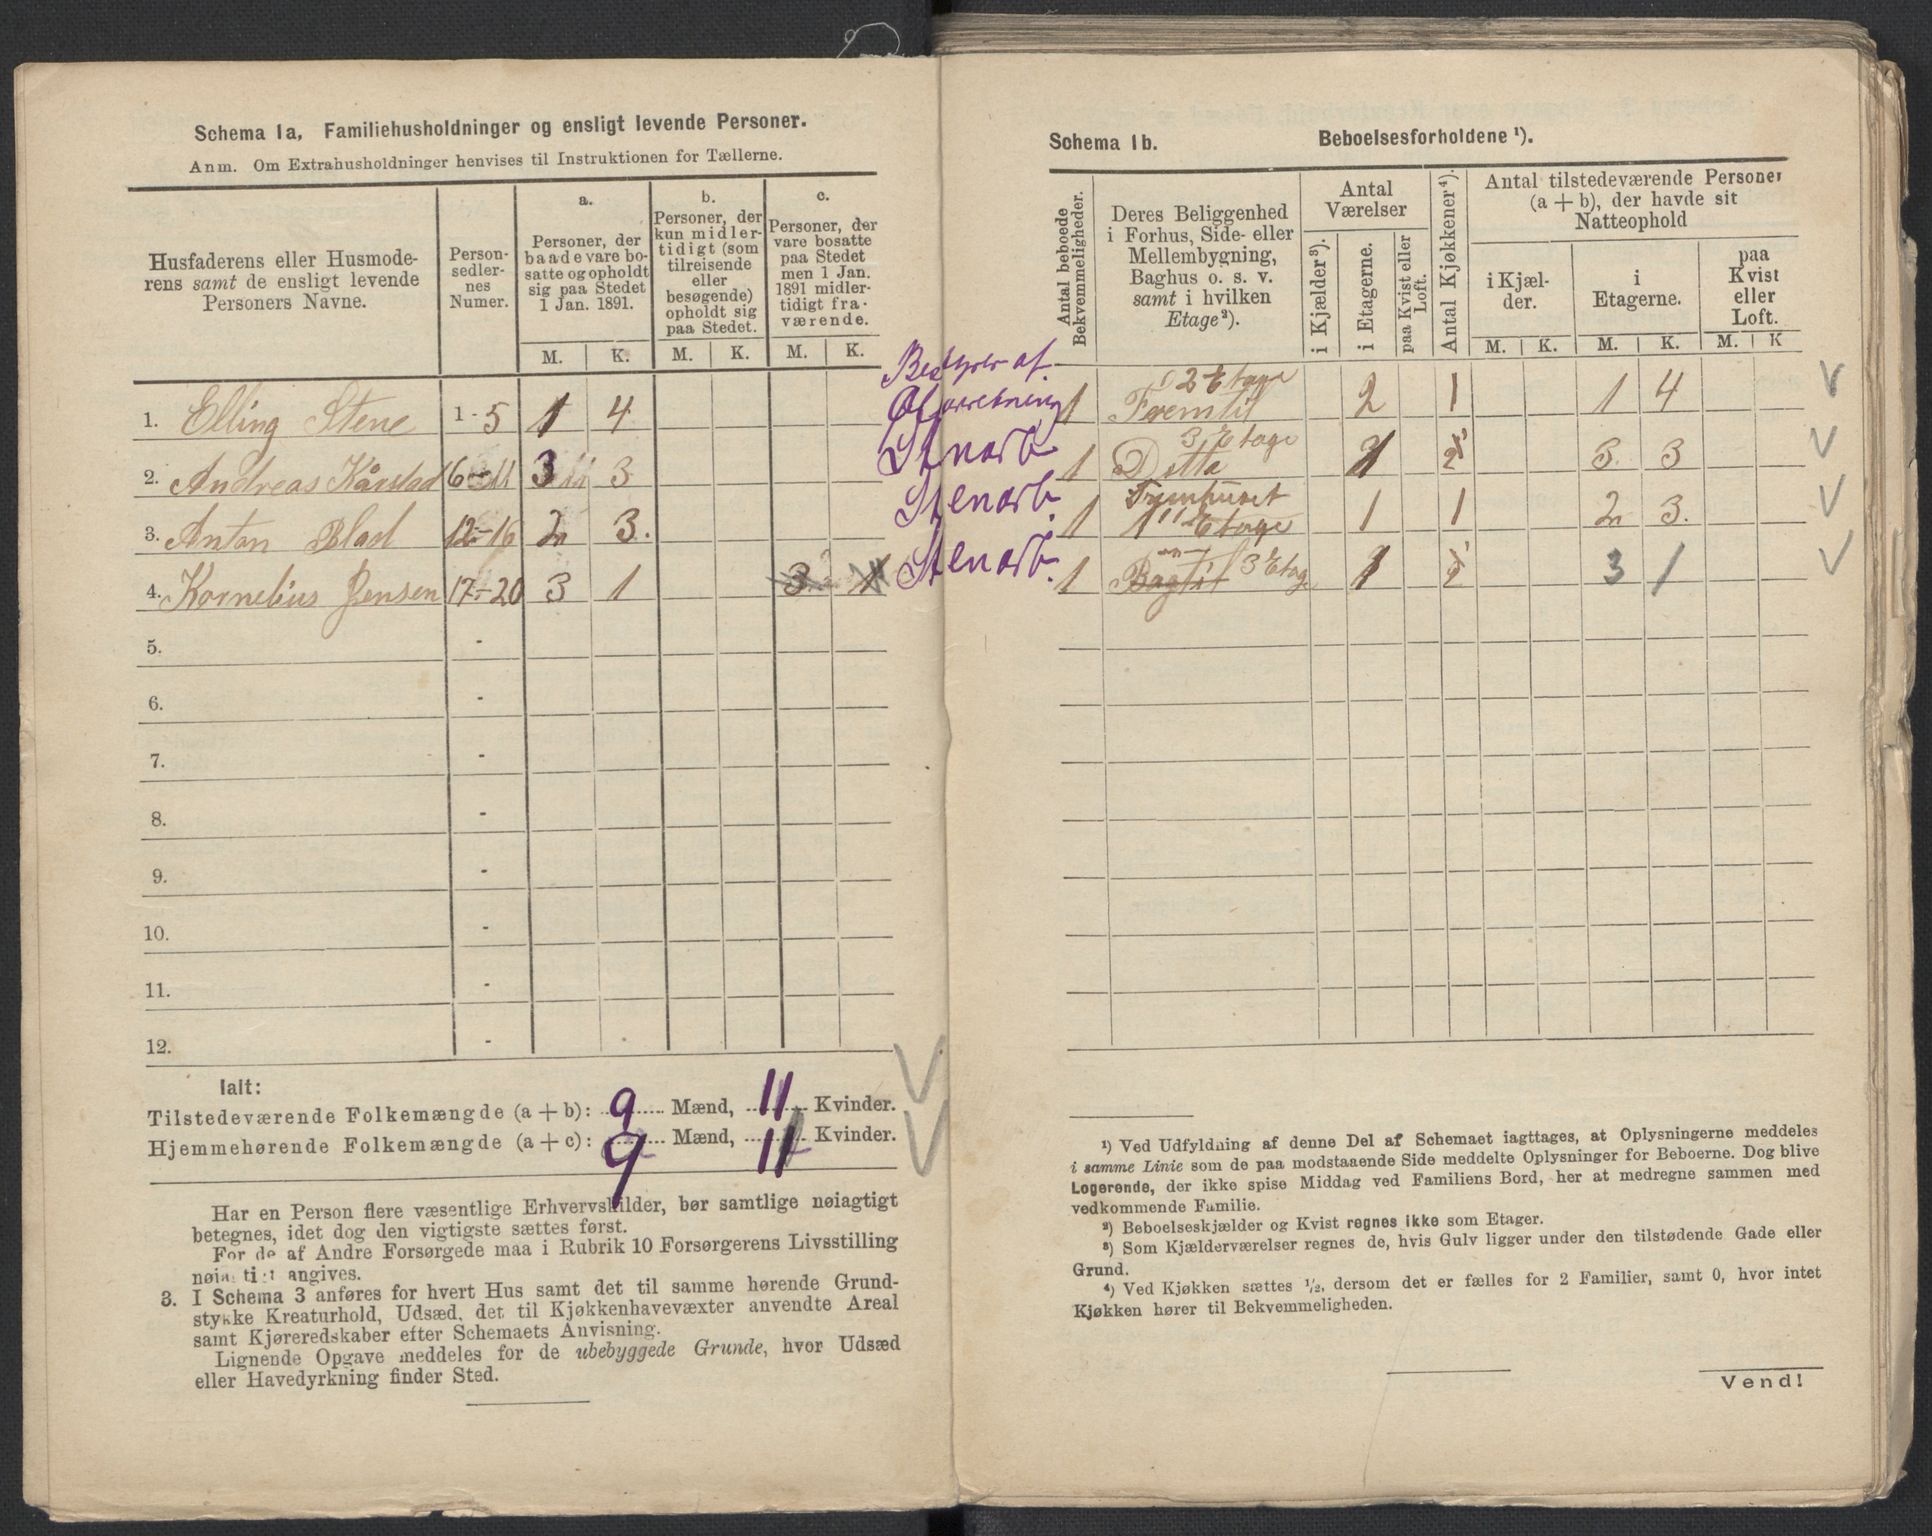 Schema 1a, Familiehusholdninger og ensligt levende Personer.
Anm. Om Extrahusholdninger henvises til Instruktionen for Tællerne.
Husfaderens eller Husmoderens samt de ensligt levende Personers Navne.
Personsedlernes Numer.
a.
Personer, der baade vare bosatte og opholdt sig paa Stedet 1 Jan. 1891.
b.
Personer, der kun midlertidigt (som tilreisende eller besøgende) opholdt sig paa Stedet.
c.
Personer, der vare bosatte paa Stedet men 1 Jan. 1891 midlertidigt fraværende.
M. K. M. K. M. K.
1. Elling Stene 1-5 1 4
2. Andreas Kårstad 6-11 3 3
3. Anton Blad 12-16 2 3.
4. Kornelius Jensen 17-20 3 1 3 1
5. -
6. -
7. -
8. -
9. -
10. -
11. -
12. -
Ialt:
Tilstedeværende Folkemængde (a + b): 9 Mænd, 11 Kvinder.
Hjemmehørende Folkemængde (a + c): 9 Mænd, 11 Kvinder.
Har en Person flere væsentlige Erhvervskilder, bør samtlige nøiagtigt
betegnes, idet dog den vigtigste sættes først.
For de af Andre Forsørgede maa i Rubrik 10 Forsørgerens Livsstilling
nøiagtigt angives.
3. I Schema 3 anføres for hvert Hus samt det til samme hørende Grund-
stykke Kreaturhold, Udsæd, det til Kjøkkenhavevæxter anvendte Areal
samt Kjøreredskaber efter Schemaets Anvisning.
Lignende Opgave meddeles for de ubebyggede Grunde, hvor Udsæd
eller Havedyrkning finder Sted.
Schema 1b. Beboelsesforholdene ¹).
Antal beboede Bekvemmeligheder.
Deres Beliggenhed i Forhus, Side- eller Mellembygning, Baghus o. s. v. samt i hvilken Etage²).
Antal Værelser
i Kjælder³).
i Etagerne.
paa Kvist eller Loft.
Antal Kjøkkener⁴).
Antal tilstedeværende Personer (a + b), der havde sit Natteophold
i Kjælder.
i Etagerne.
paa Kvist eller Loft.
M. K. M. K. M. K
Bestyrer af
1 2 Etage Fremtil 2 1 1 4
Stenarb. 1 3 Etage Ditto 1 3 3
Stenarb. 1 1 Etage 1 1 2 3.
Stenarb. 1 Bagtil 3 Etag 1 3 1
¹) Ved Udfyldning af denne Del af Schemaet iagttages, at Oplysningerne meddeles
i samme Linie som de paa modstaaende Side meddelte Oplysninger for Beboerne. Dog blive
Logerende, der ikke spise Middag ved Familiens Bord, her at medregne sammen med
vedkommende Familie.
²) Beboelseskjælder og Kvist regnes ikke som Etager.
³) Som Kjælderværelser regnes de, hvis Gulv ligger under den tilstødende Gade eller
Grund.
⁴) Ved Kjøkken sættes ¹/₂, dersom det er fælles for 2 Familier, samt 0, hvor intet
Kjøkken hører til Bekvemmeligheden.
Vend!